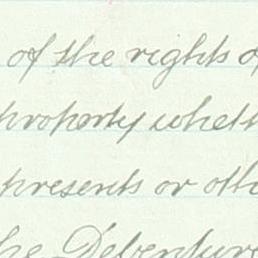 of the rights of
property wheth
presents or oth
the Debenture